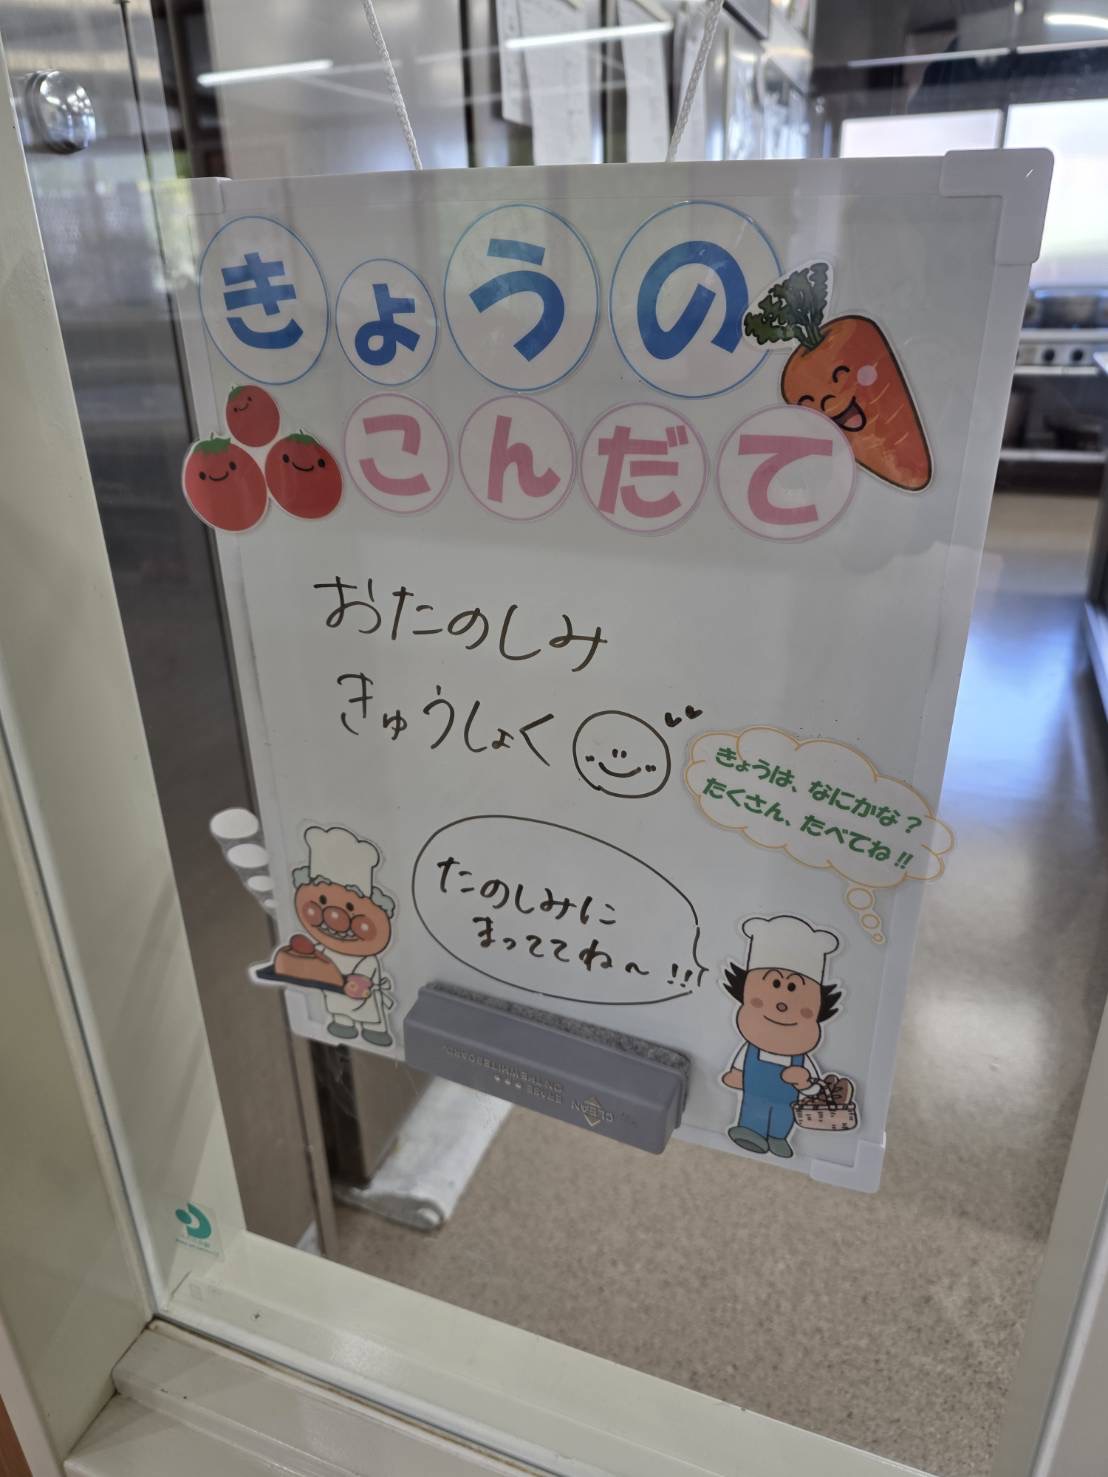 きょうの
こんだて
おたのしみ
きゅうしょく
きょうは、なにかな?
たくさん、たべてね!!
たのしみに
まっててね〜!!
CLEAN ERASE
ON THE WHITEBOARD